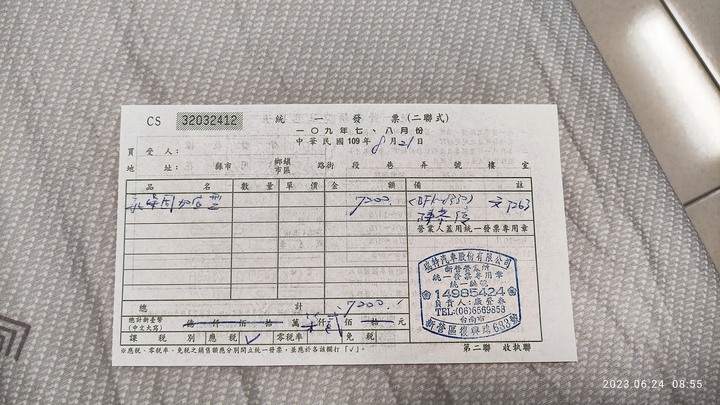 CS 32032412 統一發票(二聯式)
一〇九年七、八月份
中華民國109年8月21日
買受人：
地址： 縣市 鄉鎮市區 路街 段 巷 弄 號 樓 室
品名 數量 單價 金額 備註
永保固加值型 7200.
營業人蓋用統一發票專用章
瑞特汽車股份有限公司
新營營業所
統一發票專用章
統一編號
14985424
TEL:(06)6569858
台南市
新營區復興路683號
總計 7200.
總計新臺幣
(中文大寫) 億仟佰拾萬柒仟貳佰拾元
課稅別 應稅 ✓ 零稅率 免稅
第二聯 收執聯
※應稅、零稅率、免稅之銷售額應分別開立統一發票，並應於各該欄打「✓」。
2023.06.24 08:55